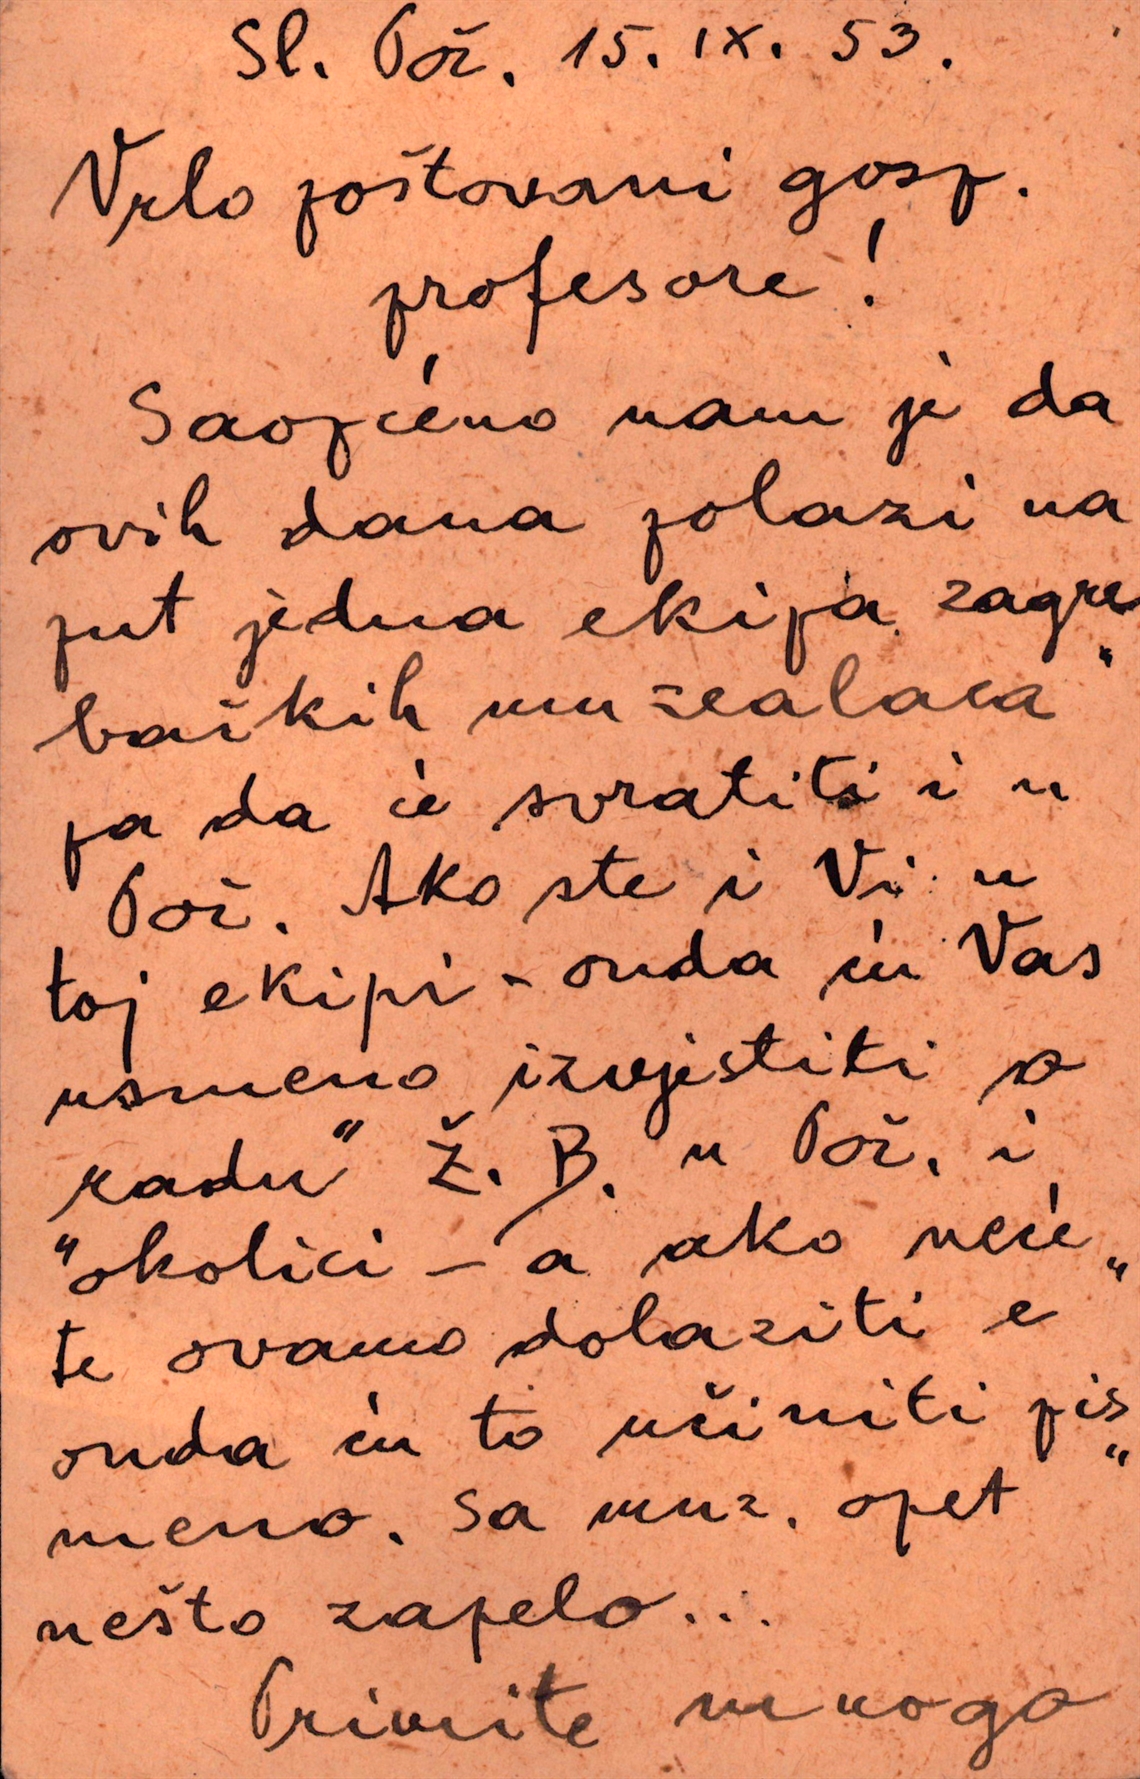 Sl. Pož. 15. IX. 53.
Vrlo poštovani gosp.
profesore!
Saopćeno nam je da
ovih dana polazi na
put jedna ekipa zagre„
bačkih muzealaca
pa da će svratiti i u
Pož. Ako ste i Vi u
toj ekipi - onda ću Vas
usmeno izvjestiti o
radu" Ž. B. u Pož. i
"okolici – a ako neće„
te ovamo dolaziti e
onda ću to učiniti pis„
meno. Sa muz. opet
nešto zapelo...
Primite mnogo